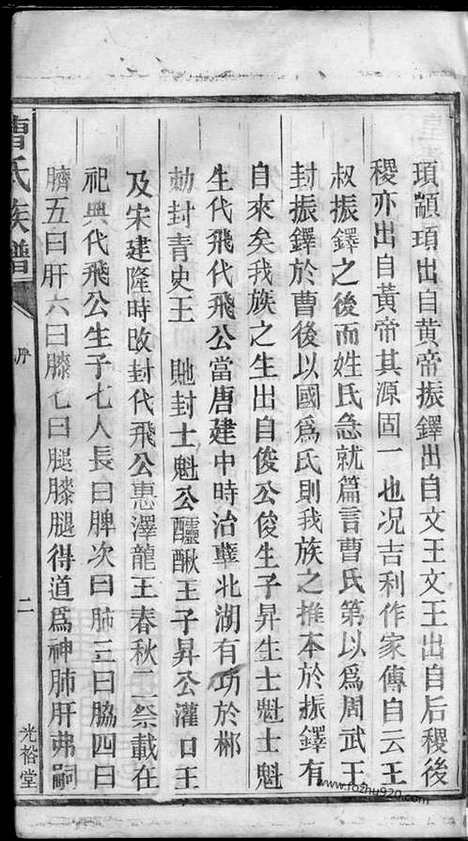 頊顓頊出自黃帝振鐸出自文王文王出自后稷后
稷亦出自黃帝其源固一也况吉利作家傳自云王
叔振鐸之後而姓氏急就篇言曹氏第以爲周武王
封振鐸於曹後以國爲氏則我族之推本於振鐸有
自來矣我族之生出自俊公俊生子昇生士魁士魁
生代飛代飛公當唐建中時治孽北湖有功於郴
勅封青史王 貤封士魁公醽醁王子昇公灌口王
及宋建隆時改封代飛公惠澤龍王春秋二祭載在
祀典代飛公生子七人長曰脾次曰肺三曰脇四曰
臍五曰肝六曰膝七曰腿膝腿得道爲神肺肝弗嗣
曹氏族譜
序
二
光裕堂
www.fozhu920.com